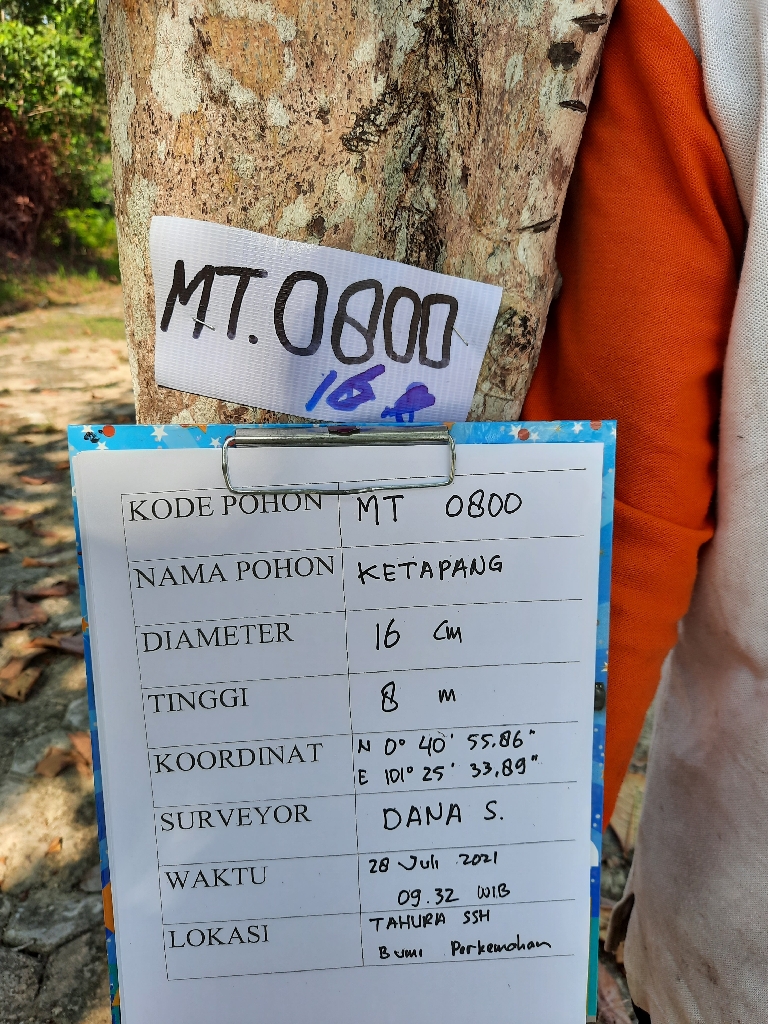 MT.0800
16 8
KODE POHON MT 0800
NAMA POHON KETAPANG
DIAMETER 16 Cm
TINGGI 8 m
KOORDINAT N 0° 40' 55.86"
E 101° 25' 33,89"
SURVEYOR DANA S.
WAKTU 28 Juli 2021
09.32 WIB
LOKASI TAHURA SSH
Bumi Perkemahan